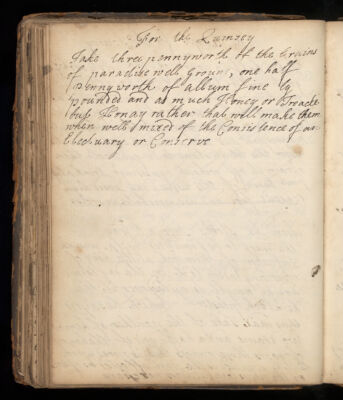 For the Quinsey
Take three pennyworth of the Grains
of paradise well ground, one half
pennyworth of album fine ly
pounded and as much Honey or Treacle
but Honay rather that will make them
when well mixed of the Consistence of an
Electuary or Conserve